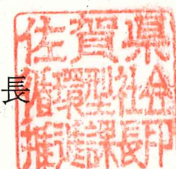 佐賀県
循環型社会
推進課長印
長